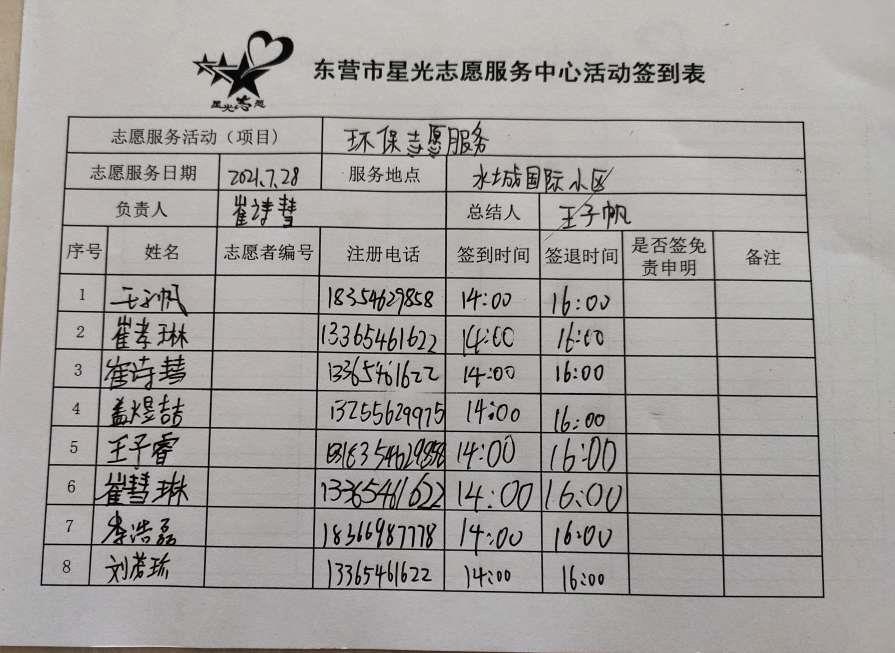 星光志愿
东营市星光志愿服务中心活动签到表
志愿服务活动（项目） 环保志愿服务
志愿服务日期 2021.7.28 服务地点 水城国际小区
负责人 崔诗慧 总结人 王子帆
序号 姓名 志愿者编号 注册电话 签到时间 签退时间 是否签免责申明 备注
1 王子帆 18354629858 14:00 16:00
2 崔孝琳 13365461622 14:00 16:00
3 崔诗慧 13365461622 14:00 16:00
4 盖煜喆 13255629975 14:00 16:00
5 王子睿 18354629858 14:00 16:00
6 崔慧琳 13365461622 14:00 16:00
7 李浩磊 18366987778 14:00 16:00
8 刘芳 13365461622 14:00 16:00